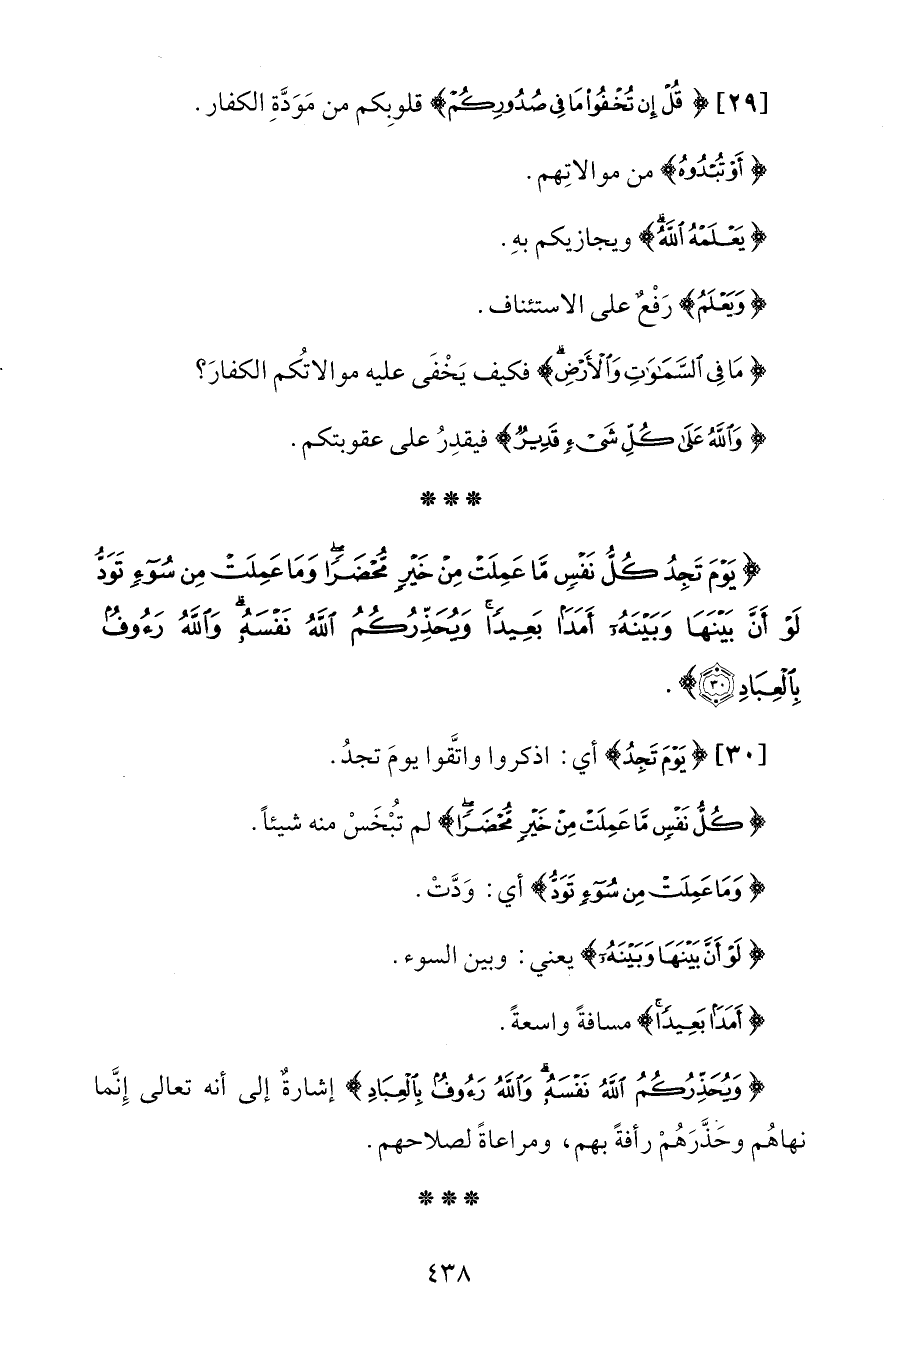 [٢٩] ﴿ قُلْ إِن تُخْفُوا۟ مَا فِى صُدُورِكُمْ ﴾ قلوبِكم من مَوَدَّةِ الكفار .
﴿ أَوْ تُبْدُوهُ ﴾ من موالاتِهم .
﴿ يَعْلَمْهُ ٱللَّهُ ۗ ﴾ ويجازيكم بهِ .
﴿ وَيَعْلَمُ ﴾ رَفْعٌ على الاستئناف .
﴿ مَا فِى ٱلسَّمَـٰوَٰتِ وَٱلْأَرْضِ ۗ ﴾ فكيف يَخْفَى عليه موالاتُكم الكفارَ؟
﴿ وَٱللَّهُ عَلَىٰ كُلِّ شَىْءٍ قَدِيرٌ ﴾ فيقدِرُ على عقوبتكم .
* * *
﴿ يَوْمَ تَجِدُ كُلُّ نَفْسٍ مَّا عَمِلَتْ مِنْ خَيْرٍ مُّحْضَرًا ۖ وَمَا عَمِلَتْ مِن سُوٓءٍ تَوَدُّ
لَوْ أَنَّ بَيْنَهَا وَبَيْنَهُۥٓ أَمَدًۢا بَعِيدًا ۚ وَيُحَذِّرُكُمُ ٱللَّهُ نَفْسَهُۥ ۗ وَٱللَّهُ رَءُوفٌۢ
بِٱلْعِبَادِ ٣٠ ﴾ .
[٣٠] ﴿ يَوْمَ تَجِدُ ﴾ أي : اذكروا واتَّقوا يومَ تجدُ .
﴿ كُلُّ نَفْسٍ مَّا عَمِلَتْ مِنْ خَيْرٍ مُّحْضَرًا ۖ ﴾ لم تُبْخَسْ منه شيئاً .
﴿ وَمَا عَمِلَتْ مِن سُوٓءٍ تَوَدُّ ﴾ أي : وَدَّتْ .
﴿ لَوْ أَنَّ بَيْنَهَا وَبَيْنَهُۥٓ ﴾ يعني : وبين السوء .
﴿ أَمَدًۢا بَعِيدًا ۚ ﴾ مسافةً واسعةً .
﴿ وَيُحَذِّرُكُمُ ٱللَّهُ نَفْسَهُۥ ۗ وَٱللَّهُ رَءُوفٌۢ بِٱلْعِبَادِ ﴾ إشارةٌ إلى أنه تعالى إنَّما
نهاهُم وحَذَّرَهُمْ رأفةً بهم، ومراعاةً لصلاحهم .
* * *
٤٣٨